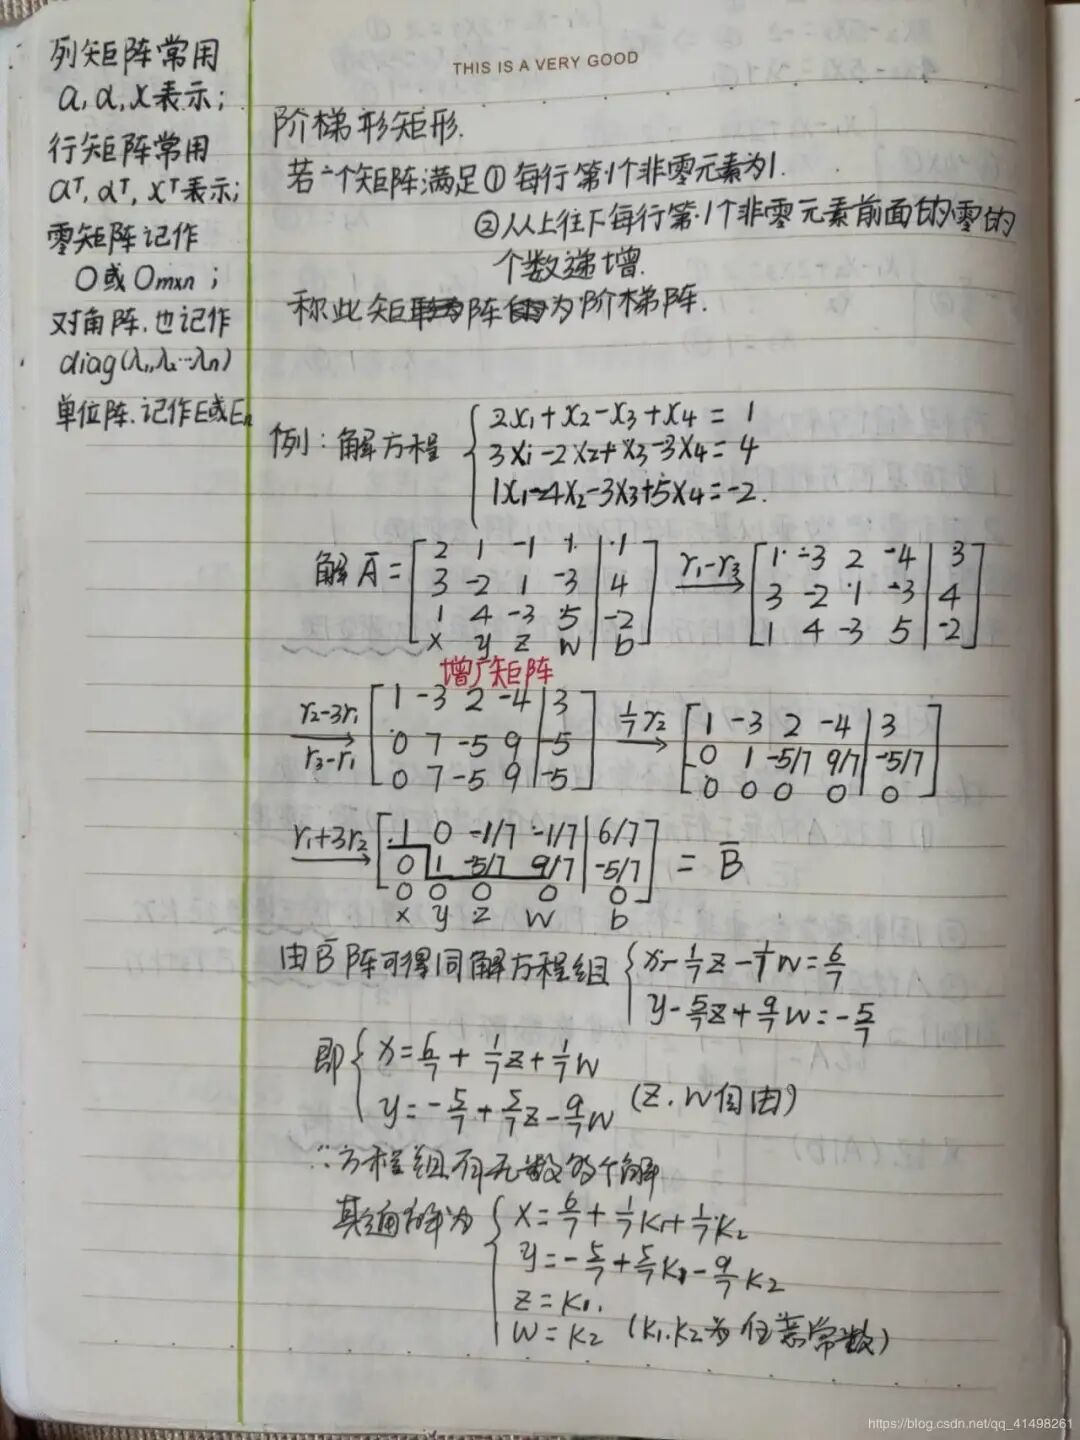 列矩阵常用
a, α, x表示;
行矩阵常用
aᵀ, αᵀ, xᵀ表示;
零矩阵记作
O或Om×n;
对角阵.也记作
diag(λ₁,λ₂…λn)
单位阵.记作E或En
THIS IS A VERY GOOD
阶梯形矩形.
若一个矩阵满足①每行第1个非零元素为1.
②从从上往下每行第1个非零元素前面的零的
个数递增.
称此矩阵为阶梯阵.
例:解方程 { 2x₁+x₂-x₃+x₄= 1
3x₁-2x₂+x₃-3x₄= 4
1x₁-4x₂-3x₃+5x₄=-2.
解 Ā= [ 2 1 -1 1 | 1 ] r₁-r₃ → [ 1 -3 2 -4 | 3 ]
[ 3 -2 1 -3 | 4 ] [ 3 -2 1 -3 | 4 ]
[ 1 4 -3 5 | -2 ] [ 1 4 -3 5 | -2 ]
x y z w | b
增广矩阵
r₂-3r₁ r₃-r₁ → [ 1 -3 2 -4 | 3 ] 1/7 r₂ → [ 1 -3 2 -4 | 3 ]
[ 0 7 -5 9 | -5 ] [ 0 1 -5/7 9/7 | -5/7 ]
[ 0 7 -5 9 | -5 ] [ 0 0 0 0 | 0 ]
r₁+3r₂ → [ 1 0 -1/7 -1/7 | 6/7 ]
[ 0 1 -5/7 9/7 | -5/7 ] = B̄
[ 0 0 0 0 | 0 ]
x y z w b
由B̄阵可得同解方程组 { x-1/7z-1/7w=6/7
y-5/7z+9/7w=-5/7
即 { x=6/7+1/7z+1/7w
y=-5/7+5/7z-9/7w (z.w自由)
∴方程组有无数多个解
其通解为 { x=6/7+1/7k₁+1/7k₂
y=-5/7+5/7k₁-9/7k₂
z=k₁.
w=k₂ (k₁.k₂为任意常数)
https://blog.csdn.net/qq_41498261